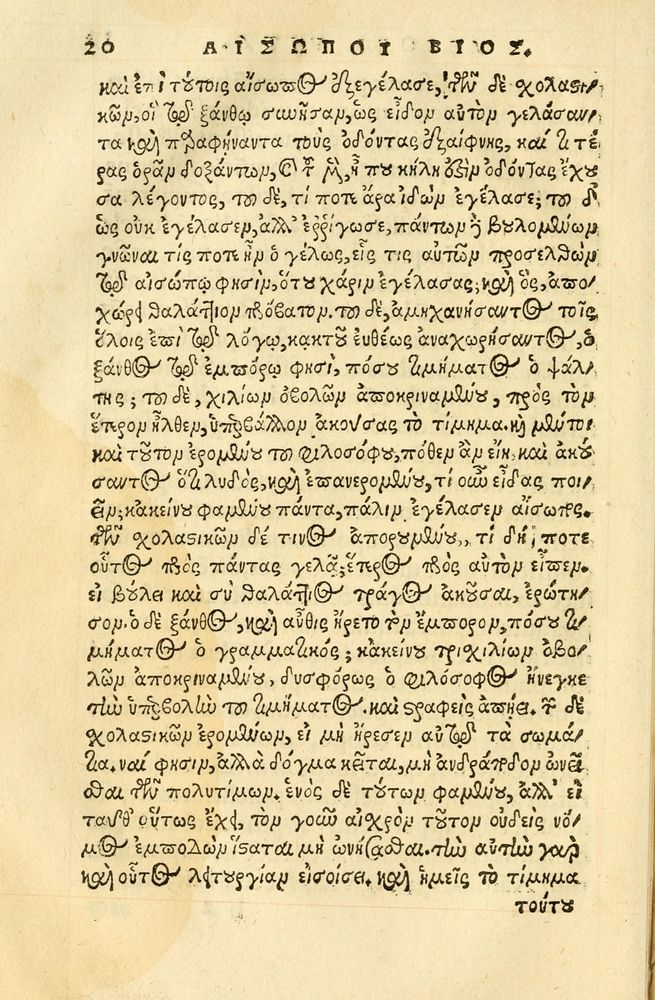 20 ΑΙΣΩΠΟΥ ΒΙΟΣ.
καὶ ἐπὶ τούτοις αἴσωπος ἐξεγέλασε, τῶν δὲ χολαστι
κῶν, οἳ τῷ ξάνθῳ συνῆσαν, ὡς εἶδον αὐτὸν γελάσαν/
τα καὶ παραφήναντα τοὺς ὀδόντας ἐξαίφνης, καί τι τέ/
ρας ὁρᾶν δοξάντων, που κήλη ὀδόντας ἔχου
σα λέγοντος, τοῦ δὲ, τί ποτε ἄρα ἰδὼν ἐγέλασε; τοῦ δ
ὡς οὐκ ἐγέλασεν, ἀλλ' ἐρρίγωσε, πάντων βουλομένων
γνῶναι τίς ποτε ἦν ὁ γέλως, εἷς τις αὐτῶν προσελθὼν
τῷ αἰσώπῳ φησὶν, ὅτου χάριν ἐγέλασας; καὶ ὃς, ἀπο/
χώρει θαλάττιον πρόβατον. τοῦ δὲ, ἀμηχανήσαντος τοῖς
ὅλοις ἐπὶ τῷ λόγῳ, κἀκ τοῦ εὐθέως ἀναχωρήσαντος, ὁ
ξάνθος τῷ ἐμπόρῳ φησὶ, πόσου τιμήματος ὁ ψάλ/
της; τοῦ δὲ, χιλίων ὀβολῶν ἀποκριναμένου, πρὸς τὸν
ἕτερον ἦλθεν, ὑπερβάλλον ἀκούσας τὸ τίμημα. καὶ μέντοι
καὶ τοῦτον ἐρομένου τοῦ φιλοσόφου, πόθεν ἂν εἴη, καὶ ἀκού
σαντος ὅτι λυδὸς, καὶ ἐπανερομένου, τί οὖν εἶδας ποι/
εῖν; κἀκείνου φαμένου πάντα, πάλιν ἐγέλασεν αἴσωπος.
τῶν χολαστικῶν δέ τινος ἀπορουμένου, τί δή ποτε
οὗτος πρὸς πάντας γελᾷ; ἕτερος πρὸς αὐτὸν εἶπεν.
εἰ βούλει καὶ σὺ θαλάττιος τράγος ἀκοῦσαι, ἐρώτη/
σον. ὁ δὲ ξάνθος, καὶ αὖθις ἤρετο τὸν ἔμπορον, πόσου τι/
μήματος ὁ γραμματικός; κἀκείνου τρισχιλίων ὀβο/
λῶν ἀποκριναμένου, δυσφόρως ὁ φιλόσοφος ἤνεγκε
τὴν ὑπερβολὴν τοῦ τιμήματος. καὶ στραφεὶς ἀπῄει. τῶν δὲ
χολαστικῶν ἐρομένων, εἰ μὴ ἤρεσεν αὐτῷ τὰ σωμά/
τια. ναί φησιν, ἀλλὰ δόγμα κεῖται, μὴ ἀνδράποδον ὠνεῖ
σθαι τῶν πολυτίμων. ἑνὸς δὲ τούτων φαμένου, ἀλλ' εἰ
ταῦθ' οὕτως ἔχει, τὸν γοῦν αἰσχρὸν τοῦτον οὐδεὶς νό/
μος ἐμποδὼν ἵσταται μὴ ὠνήσασθαι. τὴν αὐτὴν γὰρ
καὶ οὗτος λειτουργίαν εἰσοίσει. καὶ ἡμεῖς τὸ τίμημα
τούτου